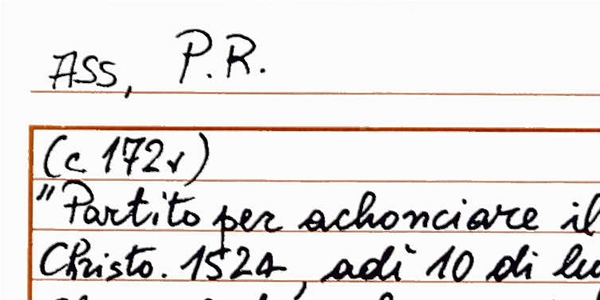 ASS, P.R.
(c 172v)
"Partito per achonciare il
Christo. 1524, adì 10 di lu